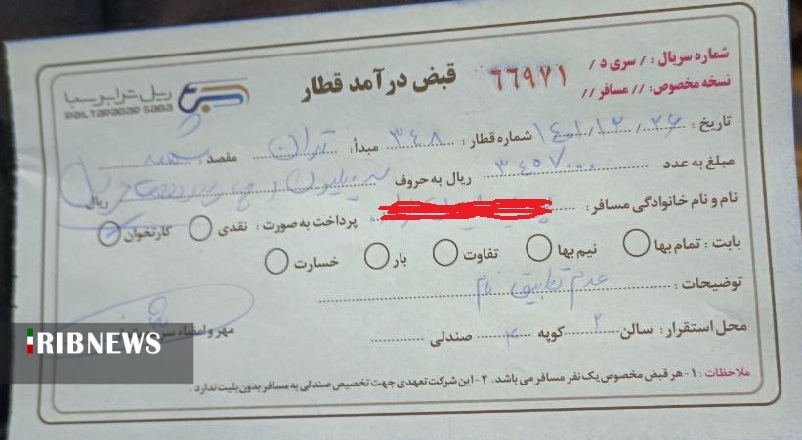 شماره سریال : / سری د /
۶۶۹۷۱
قبض درآمد قطار
ریل ترابر سبا
RAIL TARABAR SABA
نسخه مخصوص : // مسافر //
تاریخ : ۱۴۰۱/۱۲/۲۶ شماره قطار : ۳۴۸ مبدأ : تهران مقصد :
مبلغ به عدد ۳۴۵۷۰۰۰ ریال به حروف سه میلیون و ریال
نام و نام خانوادگی مسافر : پرداخت به صورت : نقدی کارتخوان
بابت : تمام بها نیم بها تفاوت بار خسارت
توضیحات : عدم تطبیق نام
محل استقرار : سالن ۲ کوپه ۴ صندلی
مهر و امضاء
ملاحظات : ۱- هر قبض مخصوص یک نفر مسافر می باشد . ۲- این شرکت تعهدی جهت تخصیص صندلی به مسافر بدون بلیت ندارد .
IRIBNEWS